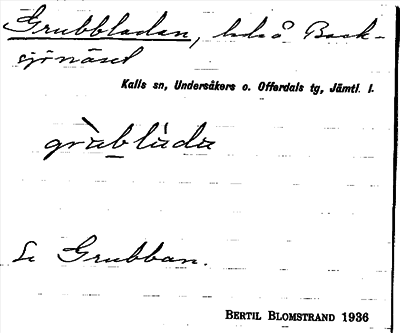 Grubbladan, lada å Back-
sjönäset
Kalls sn, Undersåkers o. Offerdals tg, Jämtl. l.
gràblàda
Se Grubban.
BERTIL BLOMSTRAND 1936